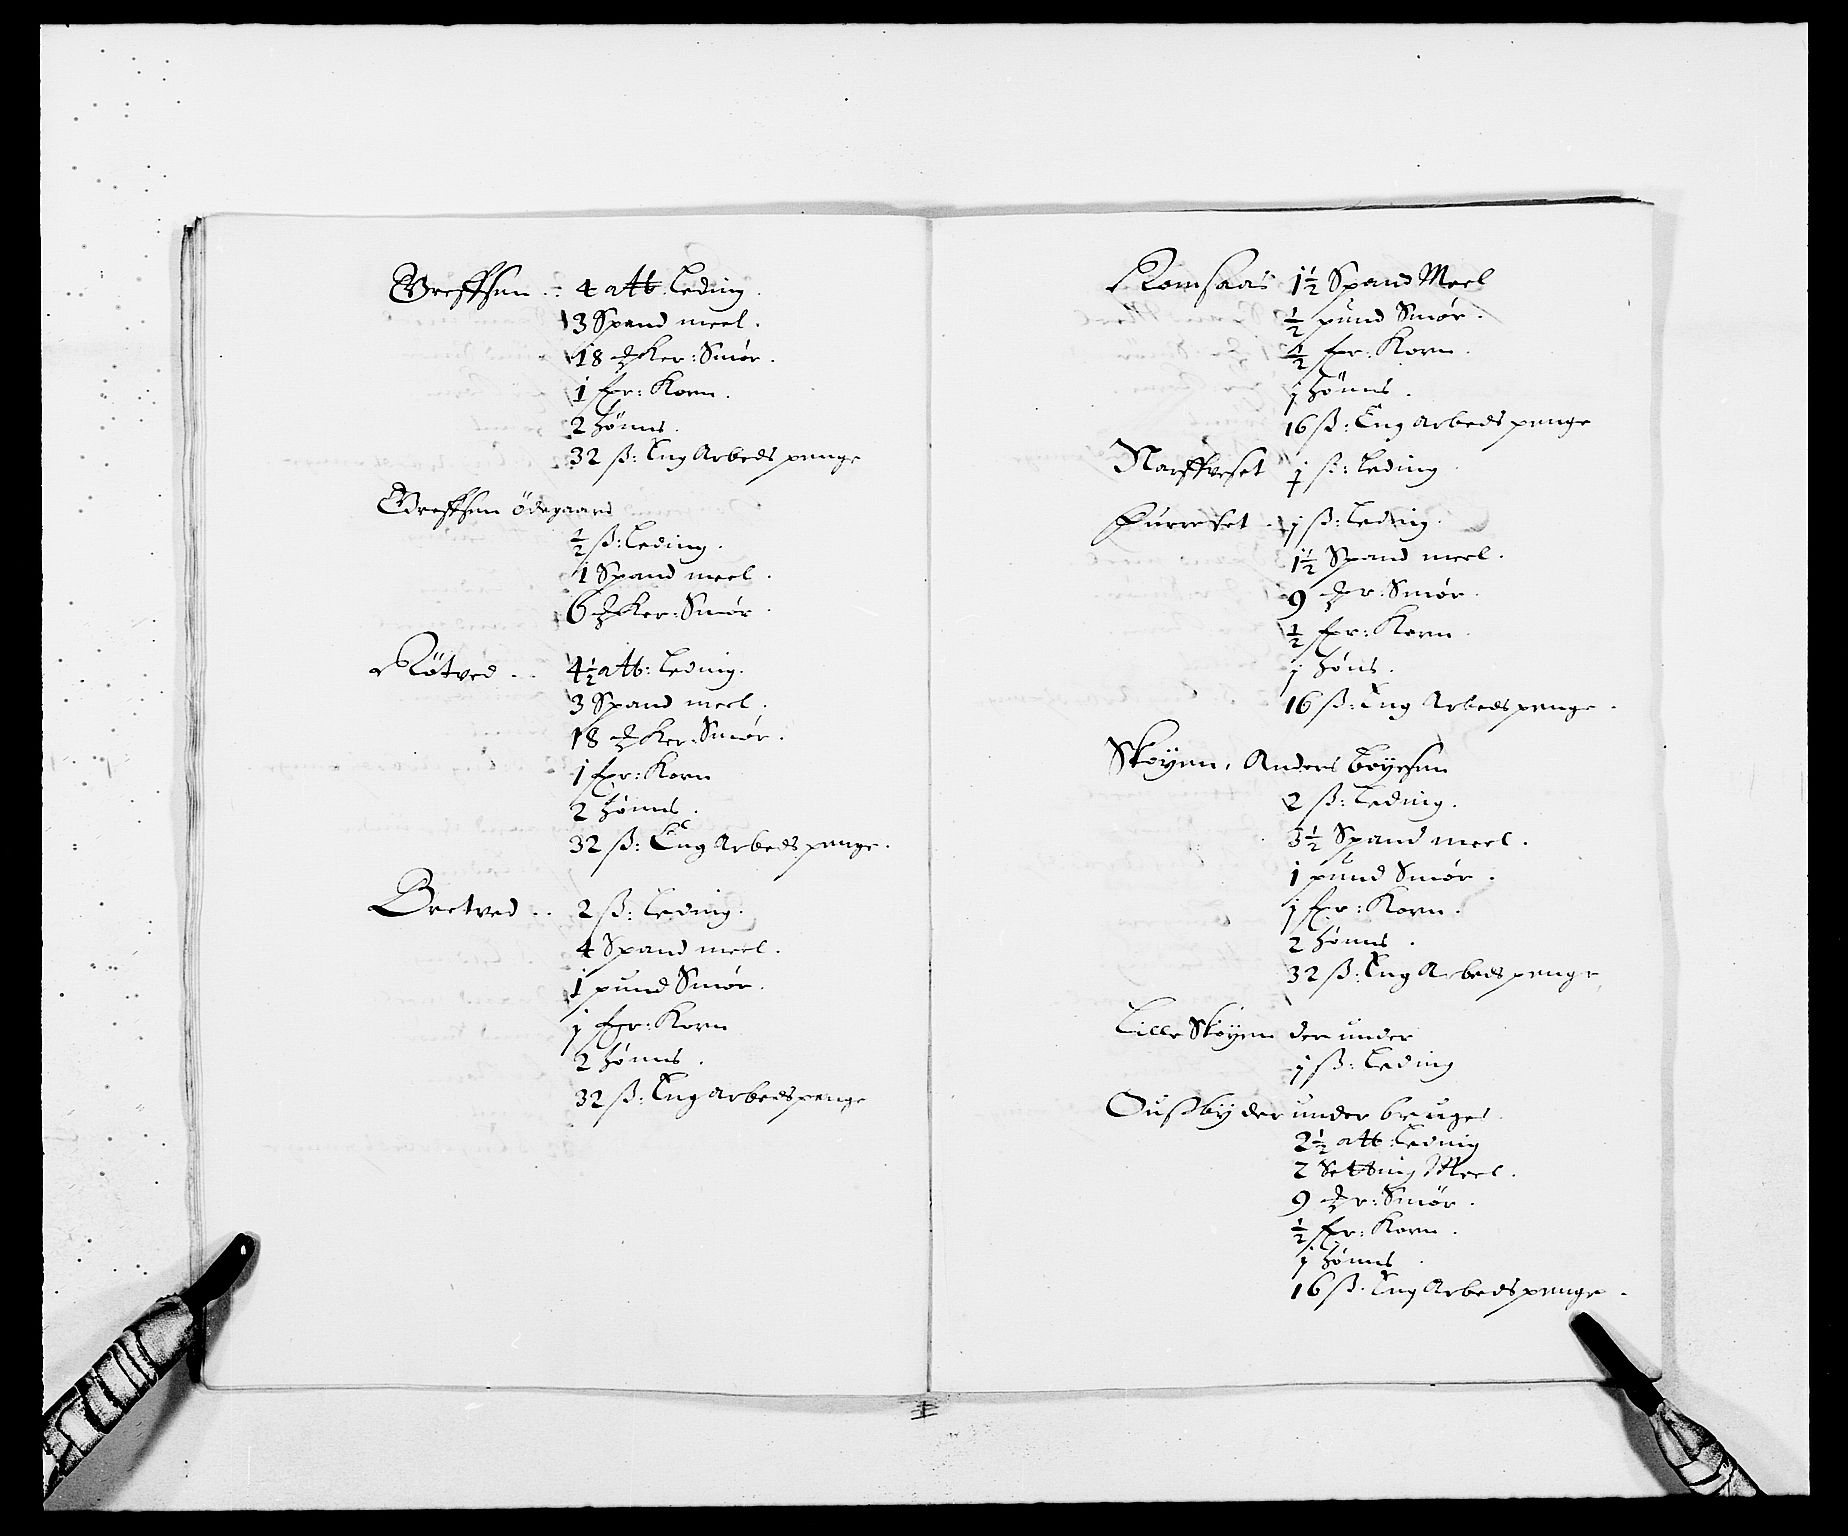 Greffsen .. 4 att: Leding.
3 Spand meel.
18 ℔ker: Smør.
1 fr: Korn.
2 hønns.
32 ß: Eng Arbeds penge
Greffsen ödegaard
½ ß: Leding.
1 Spand meel.
6 ℔ker: Smør.
Røtved .. 4½ att: Leding.
3 Spand meel.
18 ℔ker: Smør.
1 fr: Korn
2 hønns.
32 ß: Eng Arbeds penge.
Bretved .. 2 ß: Leding.
4 Spand meel.
1 pund Smør.
j fr: Korn
2 hønns.
32 ß: Eng arbeds penge
Romsaas 1½ Spand Meel
½ pund Smør.
½ fr: Korn.
j hønns.
16 ß: Eng arbeds penge
Narffveset j ß: Leding
Furreset . j ß: Leding.
1½ Spand meel.
9 ℔r: Smør.
½ fr: Korn
j høns.
16 ß: Eng Arbeds penge.
Skøyen, Anders Bøyesen
2 ß: Leding.
3½ Spand meel.
1 pund Smør.
j fr: Korn.
2 hønns.
32 ß: Eng Arbeds penge
Lille Skøyen der under
j ß: Leding
Oußby der under bruges.
2½ att: Leding
2 Setting Meel.
9 ℔r: Smør.
½ fr: Korn.
j hønns
16 ß: Eng Arbeds penge.